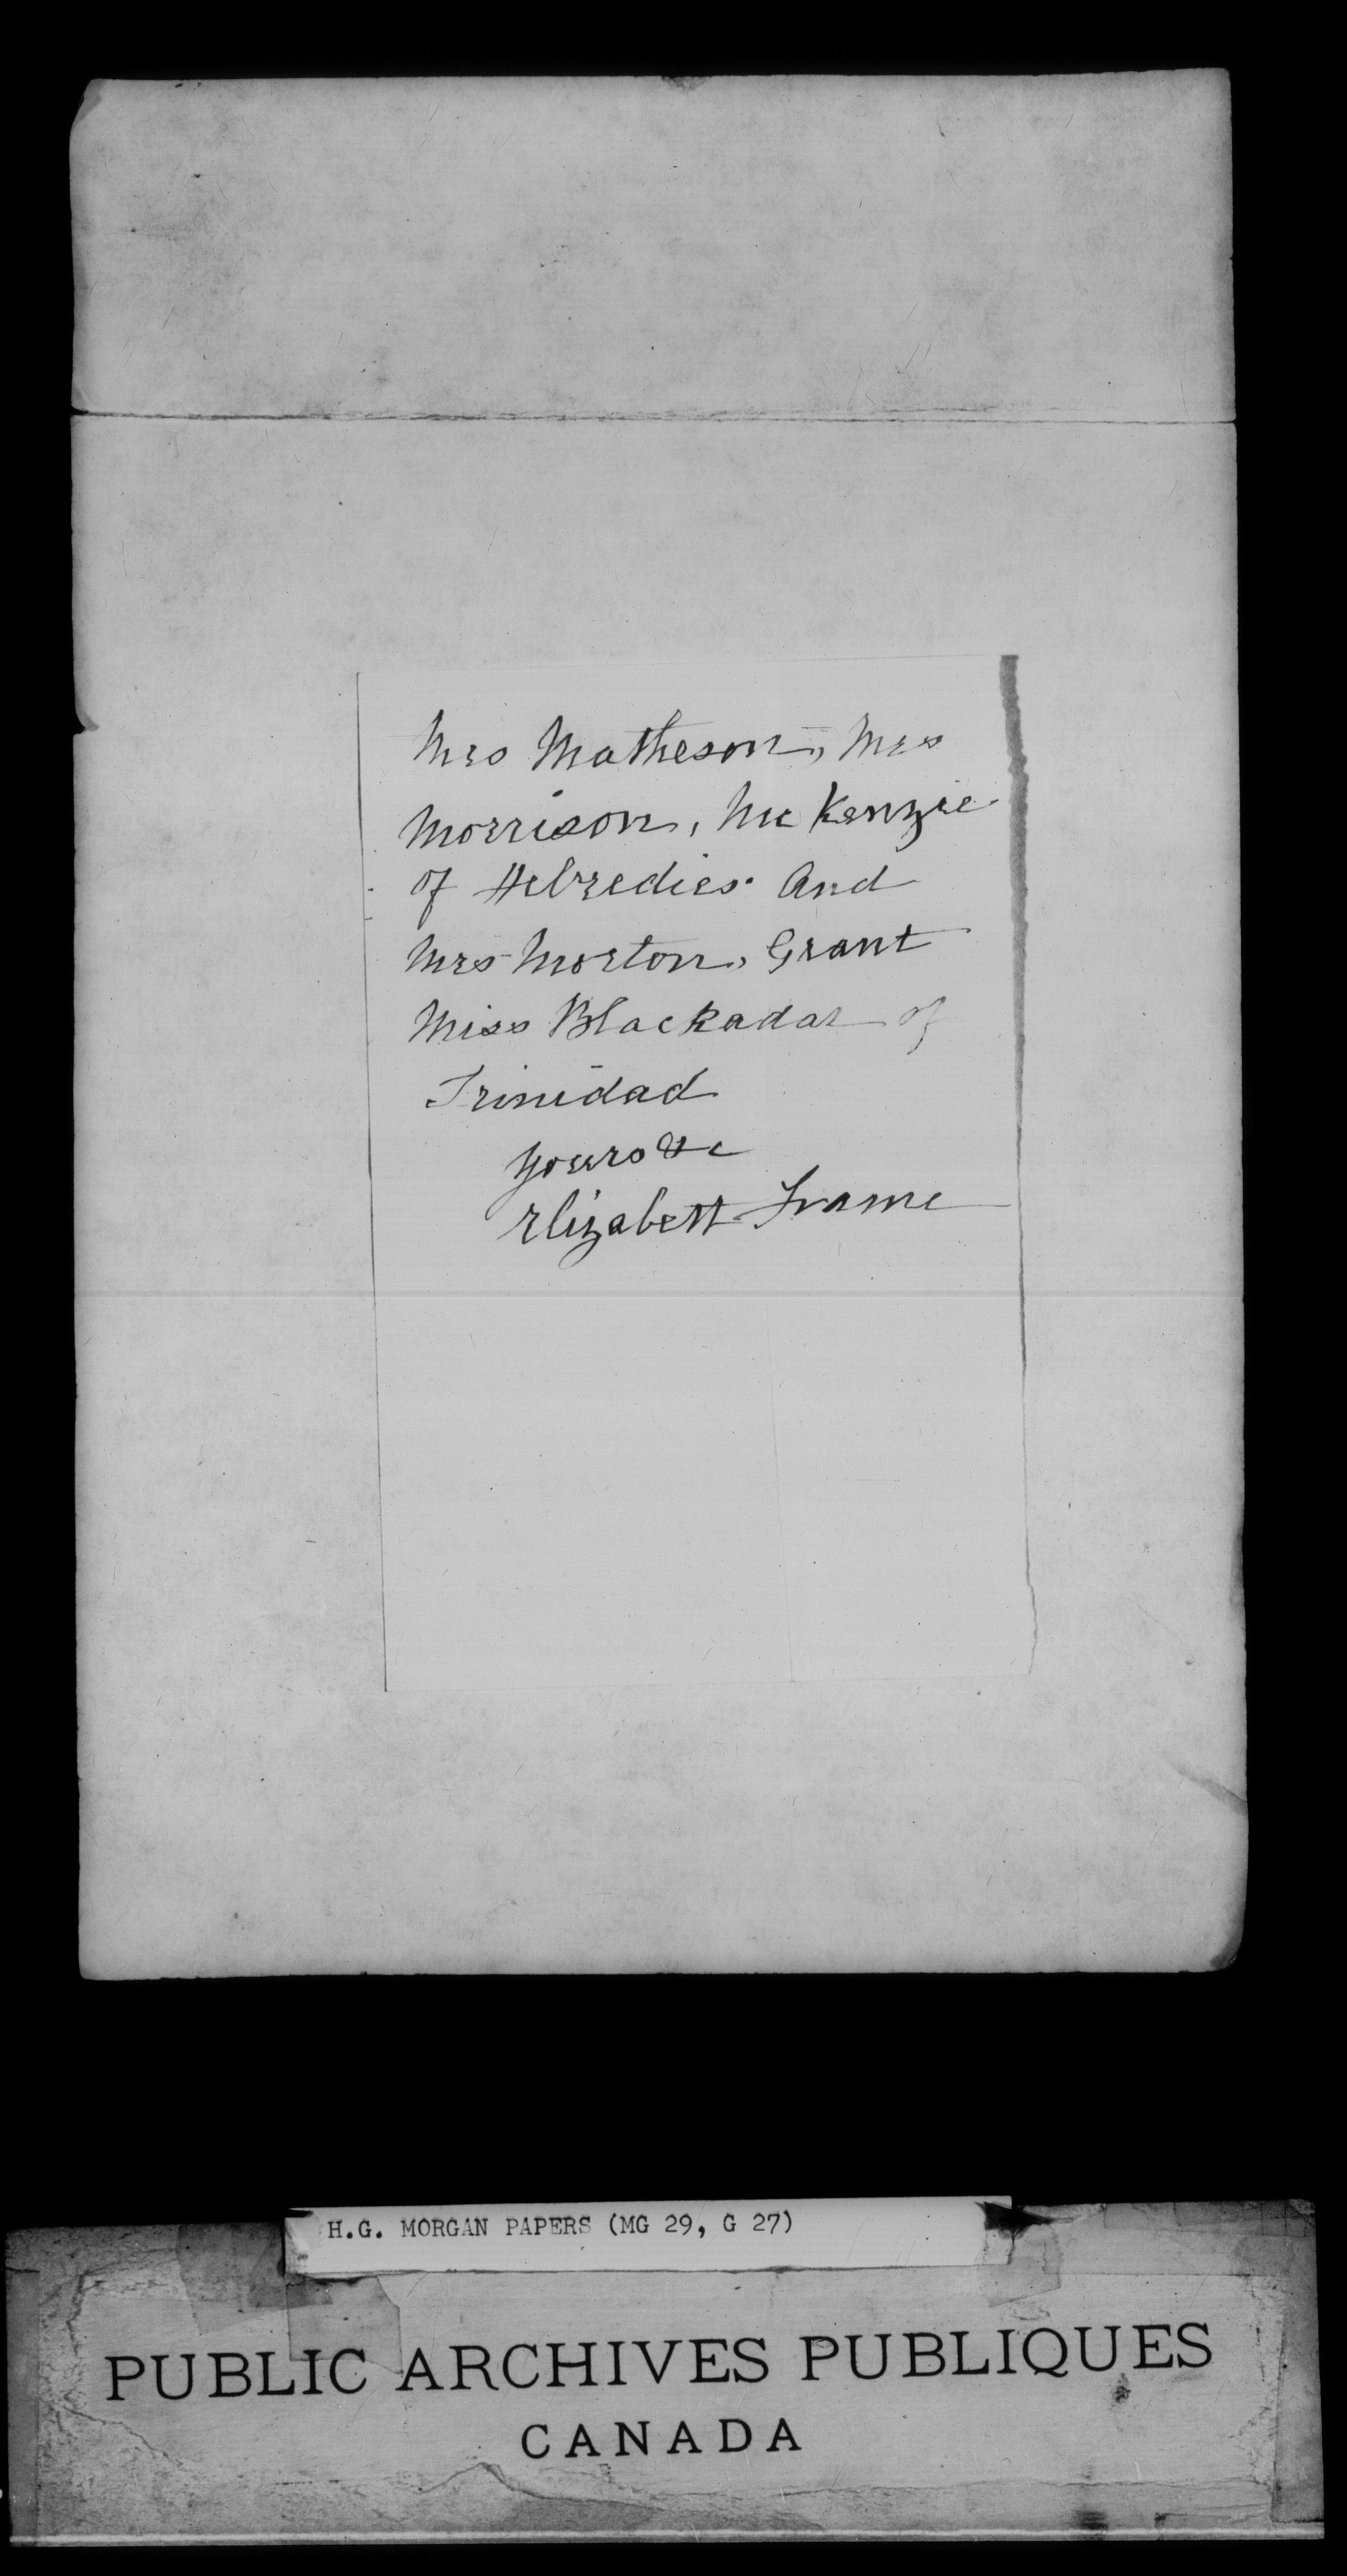 Mrs Matheson, Mrs
Morrison, Mc Kenzie
of Hebredies. And
Mrs Morton, Grant
Miss Blackadar of
Trinidad
Yours &c
Elizabeth Frame
H.G. MORGAN PAPERS (MG 29, G 27)
PUBLIC ARCHIVES PUBLIQUES
CANADA